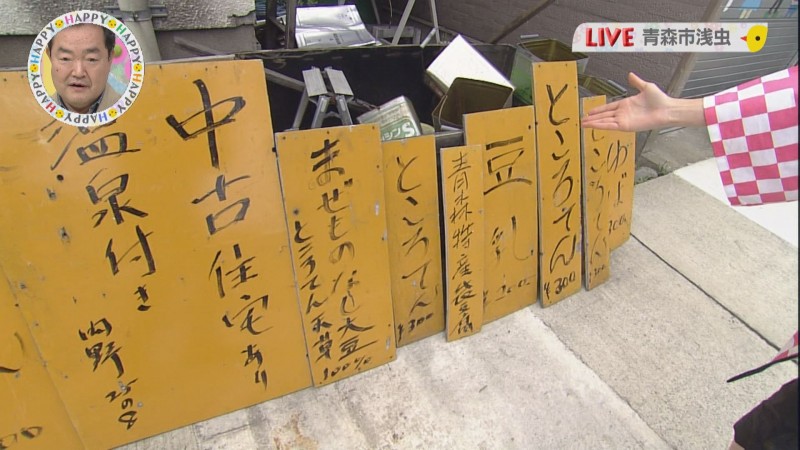 HAPPY HAPPY HAPPY HAPPY HAPPY HAPPY
LIVE 青森市浅虫
温泉付き
内野
中古住宅あり
まぜものなし大豆
ところてん天草
100%
ところてん
¥300
青森特産
豆乳
ところてん
¥300
ところてん
300